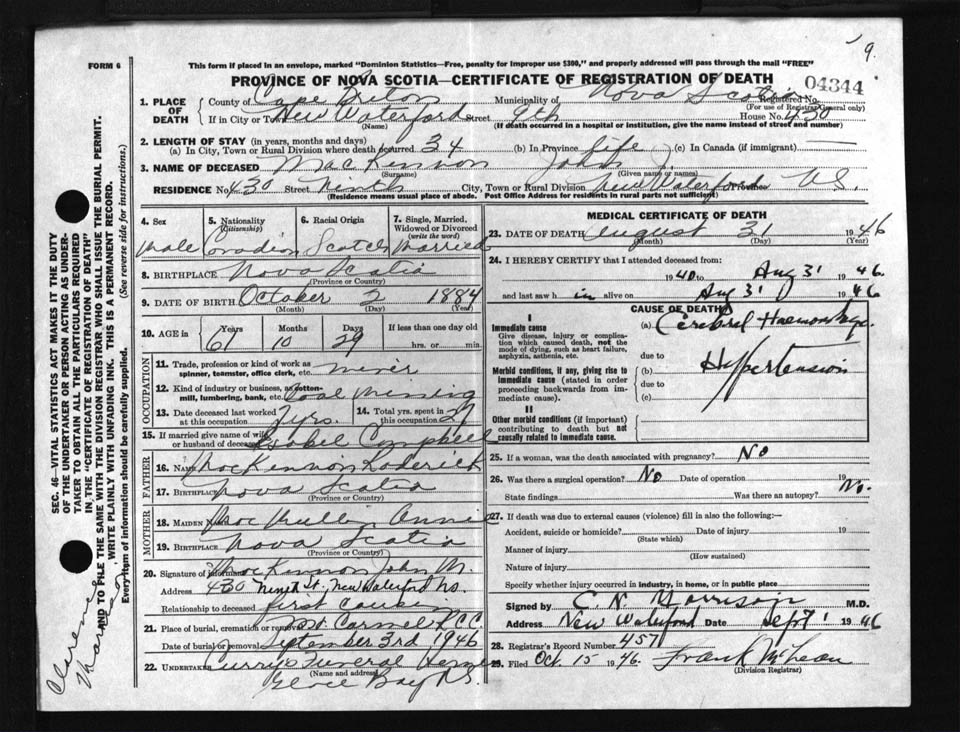 9.
FORM 6
This form if placed in an envelope, marked "Dominion Statistics—Free, penalty for improper use $300," and properly addressed will pass through the mail "FREE"
PROVINCE OF NOVA SCOTIA—CERTIFICATE OF REGISTRATION OF DEATH
04344
1. PLACE OF DEATH
County of Cape Breton Municipality of Nova Scotia Registered No.
(For use of Registrar General only)
If in City or Town New Waterford Street 9th House No. 430
(Name) (If death occurred in a hospital or institution, give the name instead of street and number)
2. LENGTH OF STAY (in years, months and days)
(a) In City, Town or Rural Division where death occurred 34 (b) In Province Life (c) In Canada (if immigrant)
3. NAME OF DECEASED MacKinnon John J.
(Surname) (Given name or names)
RESIDENCE No. 430 Street Ninth City, Town or Rural Division New Waterford Province N.S.
(Residence means usual place of abode. Post Office Address for residents in rural parts not sufficient)
4. Sex 5. Nationality (Citizenship) 6. Racial Origin 7. Single, Married, Widowed or Divorced (write the word)
Male Canadian Scotch Married
8. BIRTHPLACE Nova Scotia
(Province or Country)
9. DATE OF BIRTH October 2 1884
(Month) (Day) (Year)
10. AGE in Years Months Days If less than one day old
61 10 29 hrs. or min.
OCCUPATION
11. Trade, profession or kind of work as spinner, teamster, office clerk, etc. miner
12. Kind of industry or business, as cotton-mill, lumbering, bank, etc. Coal Mining
13. Date deceased last worked at this occupation 2 yrs. 14. Total yrs. spent in this occupation 27
15. If married give name of wife or husband of deceased Isabel Campbell
FATHER
16. Name MacKinnon Roderick
17. Birthplace Nova Scotia
(Province or Country)
MOTHER
18. Maiden Name Annie
19. Birthplace Nova Scotia
(Province or Country)
20. Signature of informant MacKinnon John M.
Address 430 Ninth St., New Waterford N.S.
Relationship to deceased first cousin
21. Place of burial, cremation or removal Mt. Carmel R.C.C.
Date of burial or removal September 3rd 1946
22. Undertaker Curry's Funeral Home
(Name and address)
Glace Bay N.S.
MEDICAL CERTIFICATE OF DEATH
23. DATE OF DEATH August 31 1946
(Month) (Day) (Year)
24. I HEREBY CERTIFY that I attended deceased from:
1940 to Aug 31 1946.
and last saw him alive on Aug 31 1946
CAUSE OF DEATH
I
Immediate cause
Give disease, injury or complication which caused death, not the mode of dying, such as heart failure, asphyxia, asthenia, etc.
(a) Cerebral Haemorrhage
due to
Morbid conditions, if any, giving rise to immediate cause (stated in order proceeding backwards from immediate cause).
(b) Hypertension
due to
(c)
II
Other morbid conditions (if important) contributing to death but not causally related to immediate cause.
25. If a woman, was the death associated with pregnancy? No
26. Was there a surgical operation? No Date of operation 19
State findings Was there an autopsy? No.
27. If death was due to external causes (violence) fill in also the following:—
Accident, suicide or homicide? Date of injury 19
(State which)
Manner of injury
(How sustained)
Nature of injury
Specify whether injury occurred in industry, in home, or in public place
Signed by C. N. Morrison M.D.
Address New Waterford Date Sept 1 1946
28. Registrar's Record Number 457
29. Filed Oct. 15 1946. Frank McLean
(Division Registrar)
SEC. 46—VITAL STATISTICS ACT MAKES IT THE DUTY
OF THE UNDERTAKER OR PERSON ACTING AS UNDER-
TAKER TO OBTAIN ALL THE PARTICULARS REQUIRED
IN THE "CERTIFICATE OF REGISTRATION OF DEATH"
AND TO FILE THE SAME WITH THE DIVISION REGISTRAR WHO SHALL ISSUE THE BURIAL PERMIT.
WRITE PLAINLY WITH UNFADING INK. THIS IS A PERMANENT RECORD.
Every item of information should be carefully supplied. (See reverse side for instructions.)
Clarence